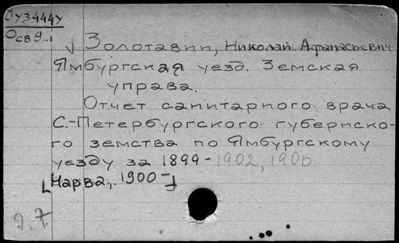 Оу3444у
Осв9.1
√ Золотавин, Николай Афанасьевич
Ямбургская уезд. Земская
управа.
Отчет санитарного врача
С.-Петербургского губернско-
го земства по Ямбургскому
уезду за 1899-1902, 1906
[Нарва, 1900-]